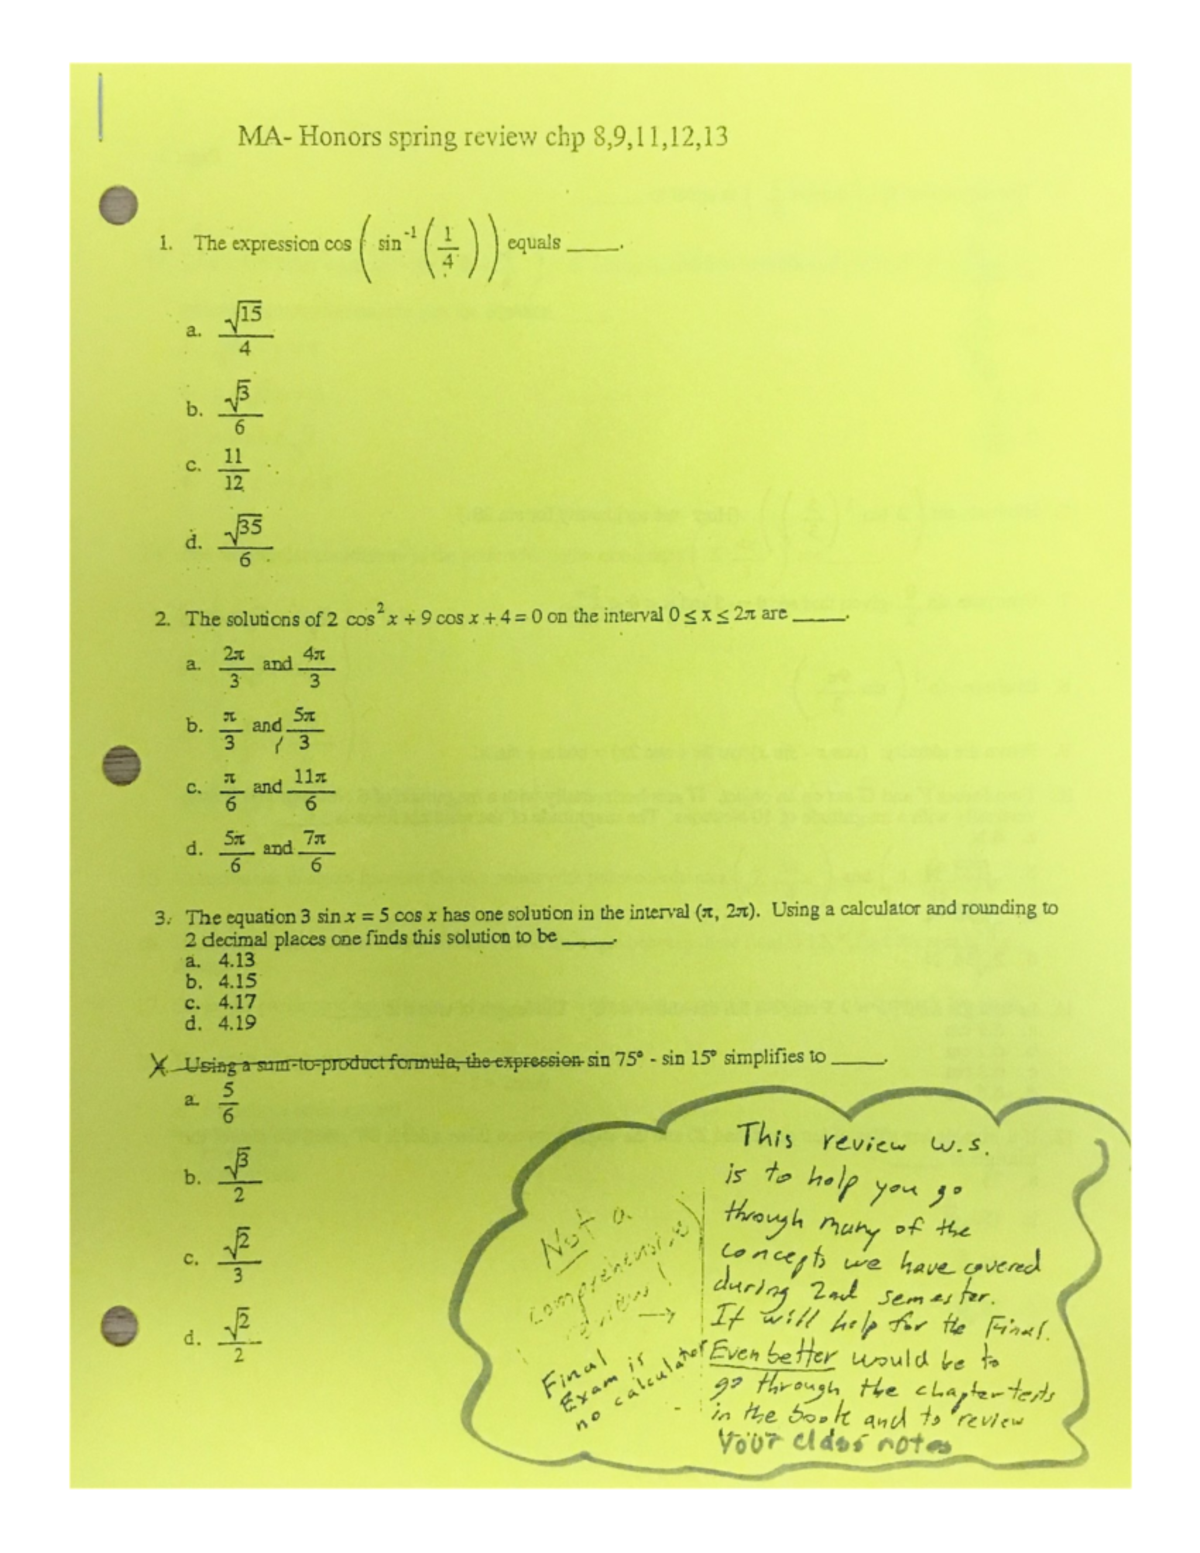 MA- Honors spring review chp 8,9,11,12,13
1. The expression cos ( sin⁻¹ ( 1/4 ) ) equals _____.
a. √15/4
b. √3/6
c. 11/12
d. √35/6
2. The solutions of 2 cos² x + 9 cos x + 4 = 0 on the interval 0 ≤ x ≤ 2π are _____.
a. 2π/3 and 4π/3
b. π/3 and 5π/3
c. π/6 and 11π/6
d. 5π/6 and 7π/6
3. The equation 3 sin x = 5 cos x has one solution in the interval (π, 2π). Using a calculator and rounding to
2 decimal places one finds this solution to be _____.
a. 4.13
b. 4.15
c. 4.17
d. 4.19
Using a sum-to-product formula, the expression sin 75° - sin 15° simplifies to _____.
a. 5/6
b. √3/2
c. √2/3
d. √2/2
Not a
comprehensive
review!
→
Final
Exam is
no calculator
This review w.s.
is to help you go
through many of the
concepts we have covered
during 2nd semester.
It will help for the Final.
Even better would be to
go through the chapter tests
in the book and to review
your class notes